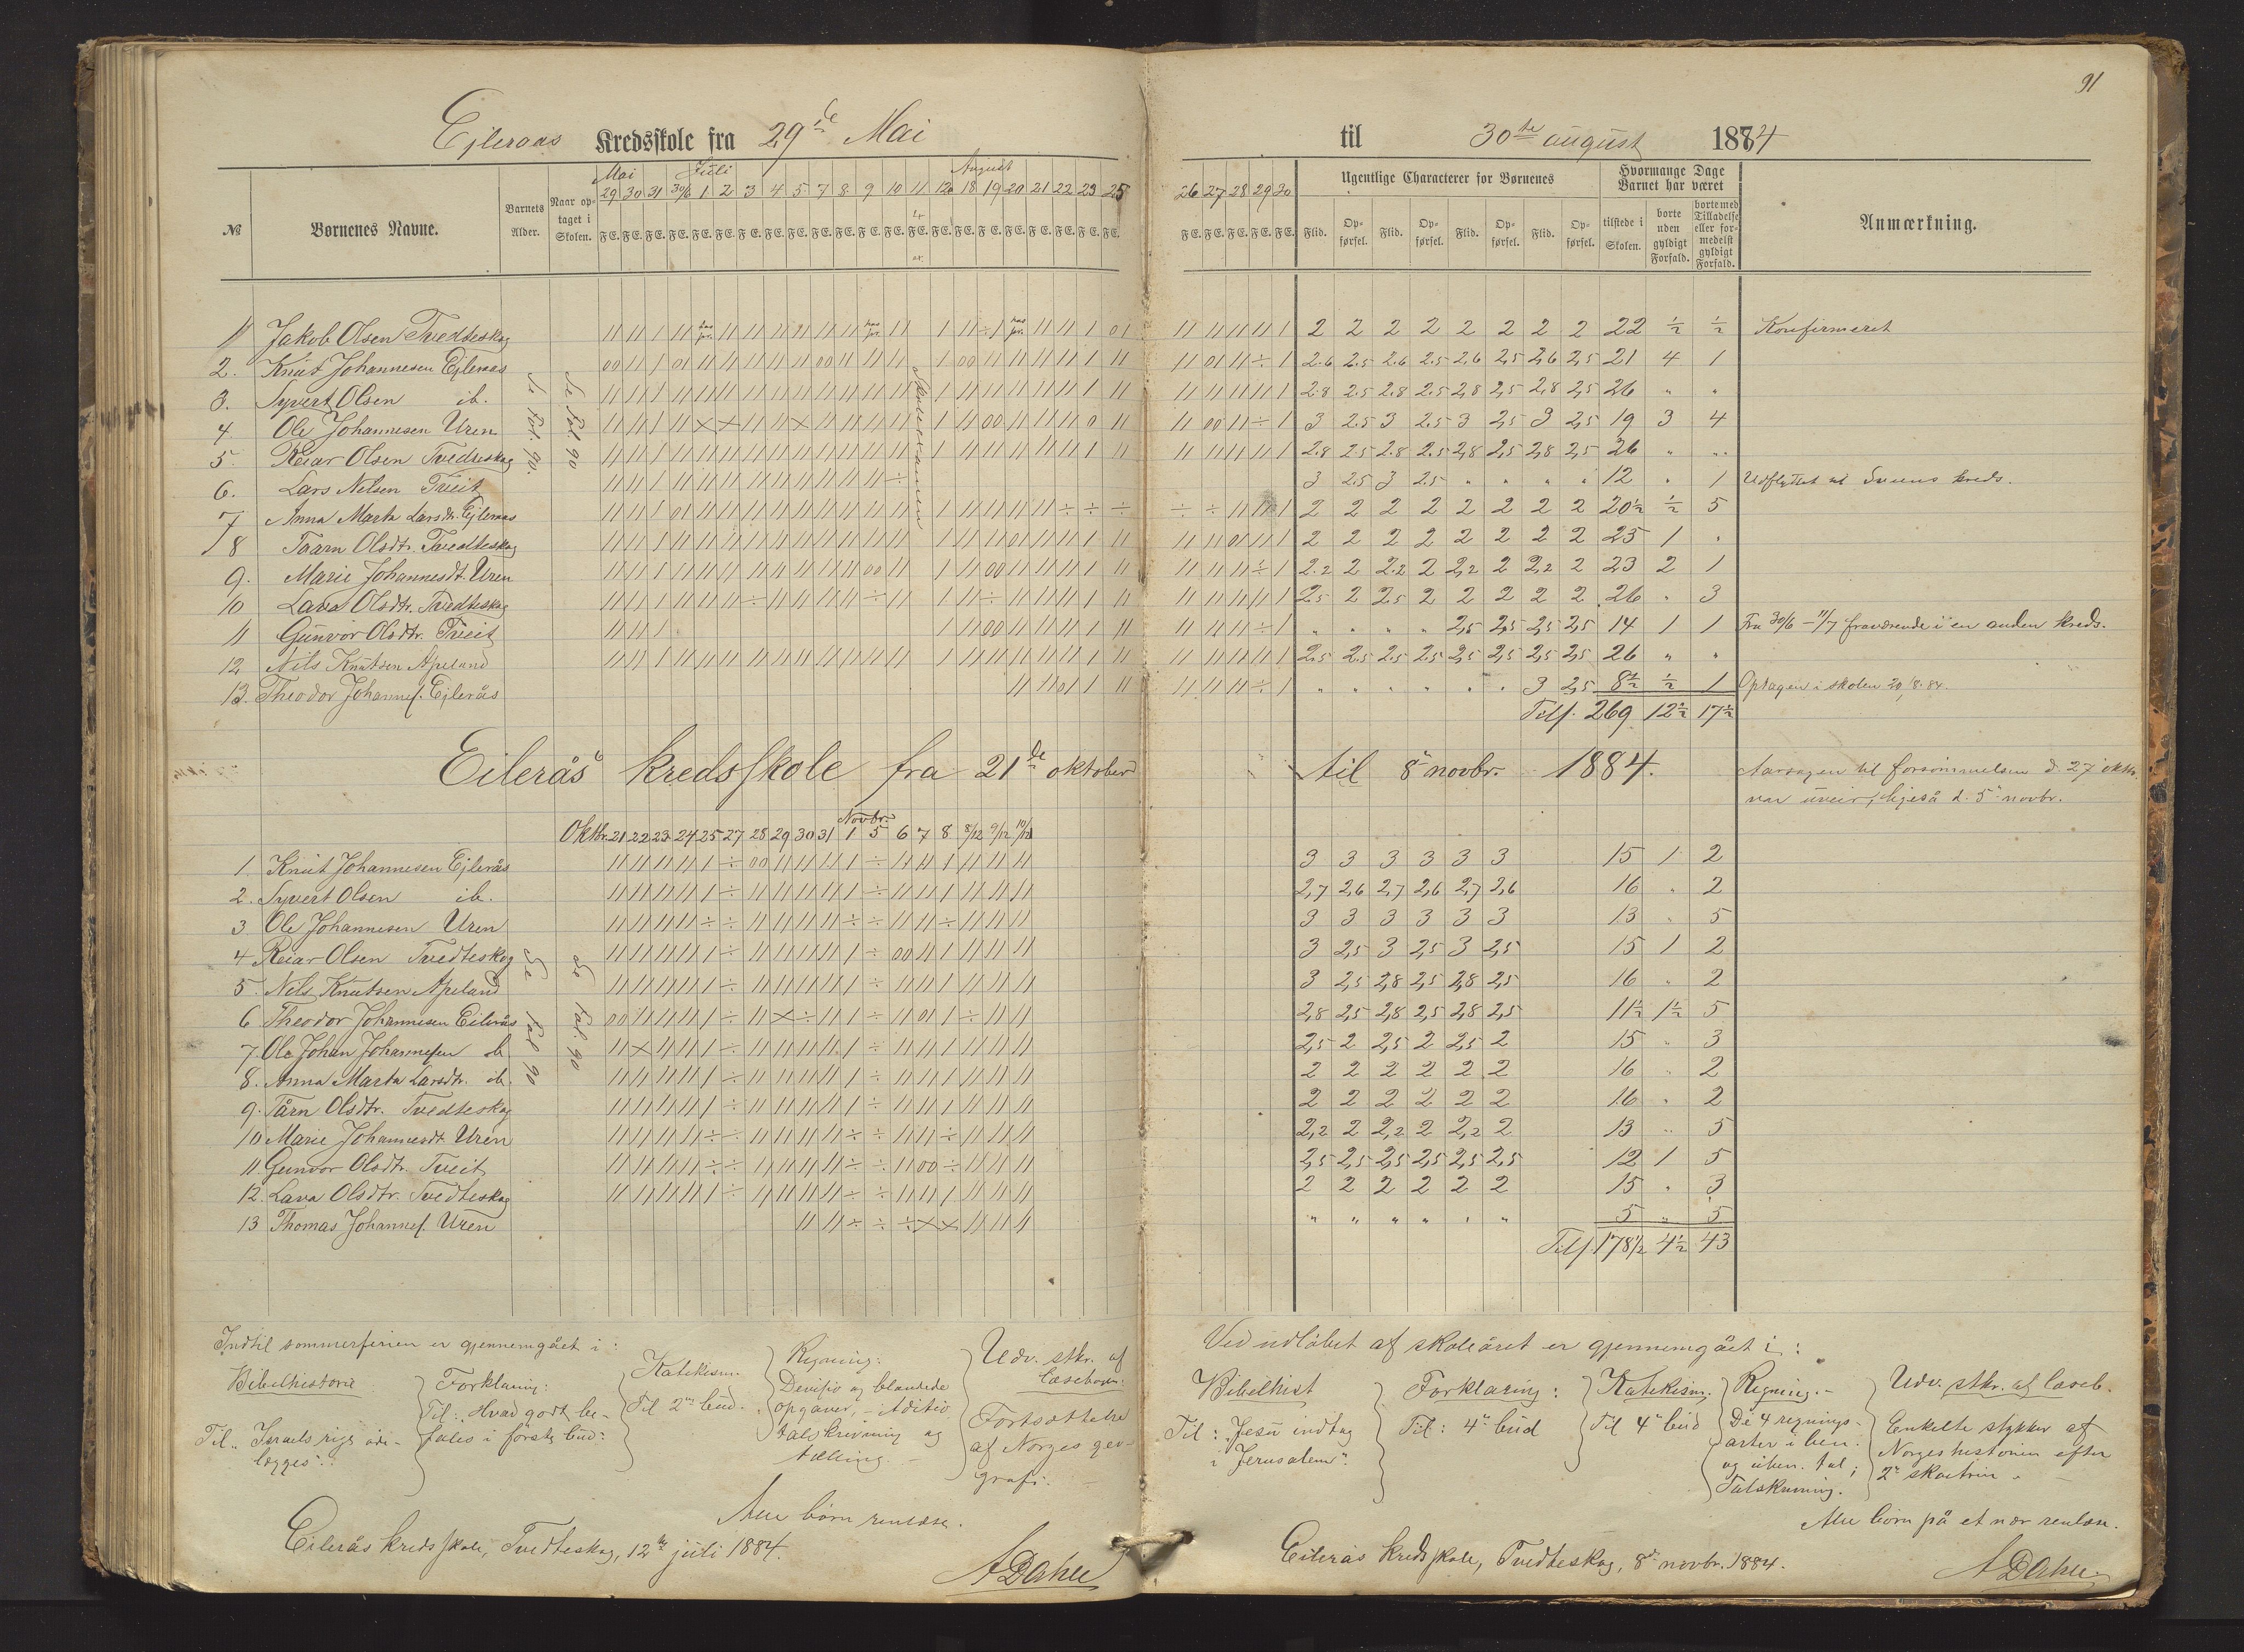 91
Ejleraas Kredsskole fra 29de Mai til 30te august 1884
№ Børnenes Navne. Barnets Alder. Naar optaget i Skolen. Mai 29 30 31 30/6 Juli 1 2 3 4 5 7 8 9 10 11 12 August 18 19 20 21 22 23 25 26 27 28 29 30
Ugentlige Characterer for Børnenes Flid. Opførsel. Flid. Opførsel. Flid. Opførsel. Flid. Opførsel.
Hvormange Dage Barnet har været tilstede i Skolen. borte uden gyldigt Forfald. borte med Tilladelse eller formedelst gyldigt Forfald. Anmærkning.
Se Pag. 90. Se Pag. 90
1 Jakob Olsen Tvedteskog 2 2 2 2 2 2 2 2 22 ½ ½ Konfirmeret
2. Knut Johannesen Ejleraas 2.6 2.5 2.6 2.5 2,6 2,5 2,6 2,5 21 4 1
3. Syvert Olsen ib. 2.8 2.5 2.8 2.5 2,8 2,5 2,8 2,5 26 " "
4. Ole Johannesen Uren 3 2.5 3 2.5 3 2,5 3 2,5 19 3 4
5. Reiar Olsen Tvedteskog 2.8 2.5 2.8 2.5 2,8 2,5 2,8 2,5 26 " "
6. Lars Nilsen Tveit 3 2.5 3 2.5 " " " " 12 " 1 Udflyttet til kreds.
7 Anna Marta Larsdtr. Ejleraas 2 2 2 2 2 2 2 2 20½ ½ 5
8 Taarn Olsdtr. Tvedteskog 2 2 2 2 2 2 2 2 25 1 "
9. Marie Johannesdt. Uren 2.2 2 2.2 2 2,2 2 2,2 2 23 2 1
10 Lava Olsdtr. Tvedteskog 2.5 2 2.5 2 2 2 2 2 26 " 3
11 Gunvor Olsdtr. Tveit " " " " 2,5 2,5 2,5 2,5 14 1 1 Fra 30/6 – 11/7 fraværende i en anden kreds.
12 Nils Knutsen Apeland 2.5 2.5 2.5 2.5 2,5 2,5 2,5 2,5 26 " "
13. Theodor Johannes. Ejlerås " " " " " " 3 2,5 8½ ½ 1 Optagen i skolen 20/8. 84.
Tils. 269 12½ 17½
Eilerås kredsskole fra 21de oktober til 8de novbr. 1884.
Aarsagen til forsømmelsen d. 27 oktbr.
var uveir, ligeså d. 5te novbr.
Oktbr. 21 22 23 24 25 27 28 29 30 31 Novbr. 1 5 6 7 8 8/12 9/12 10/12
Se Pag 90 Se Pag. 90
1 Knut Johannesen Ejlerås 3 3 3 3 3 3 15 1 2
2. Syvert Olsen ib. 2,7 2,6 2,7 2,6 2,7 2,6 16 " 2
3 Ole Johannesen Uren 3 3 3 3 3 3 13 " 5
4 Reiar Olsen Tvedteskog 3 2,5 3 2,5 3 2,5 15 1 2
5. Nils Knutsen Apeland 3 2,5 2,8 2,5 2,8 2,5 16 " 2
6 Theodor Johannesen Eilerås 2,8 2,5 2,8 2,5 2,8 2,5 11½ 1½ 5
7. Ole Johan Johannesen ib 2,5 2 2,5 2 2,5 2 15 " 3
8. Anna Marta Larsdtr. ib. 2 2 2 2 2 2 16 " 2
9. Tårn Olsdtr. Tvedteskog 2 2 2 2 2 2 16 " 2
10 Marie Johannesdt. Uren 2,2 2 2,2 2 2,2 2 13 " 5
11. Gunvor Olsdtr. Tveit 2,5 2,5 2,5 2,5 2,5 2,5 12 1 5
12. Lava Olsdtr. Tvedteskog 2 2 2 2 2 2 15 " 3
13 Thomas Johannes. Uren " " " " " " 5 " 5
Tils. 178½ 4½ 43
Indtil sommerferien er gjennemgået i:
Bibelhistorie
Til „Israels rige ødelægges".
Forklaring:
Til: „Hvad godt befales i første bud:
Katekism.
Til 2det bud.
Regning:
Divisio og blandede
opgaver, – Aditio
talskrivning og
tælling. –
Udv. stkr. af
læsebogen:
Fortsættelse
af Norges geografi.
Alle børn renlæse.
Eilerås kredsskole, Tvedteskog, 12te juli 1884.
A Dahle
Ved udløbet af skoleåret er gjennemgået i:
Bibelhist
Til: „Jesu indtog
i Jerusalem".
Forklaring:
Til: 4de bud
Katekism.
Til 4de bud
Regning. –
De 4 regningsarter i ben.
og uben. tal;
Talskrivning.
Udv. stkr. af læseb.
Enkelte stykker af
Norgeshistorien efter
2det skoletrin.
Alle børn på et nær renlæse.
Eilerås kredsskole, Tvedteskog, 8de novbr. 1884.
A Dahle.